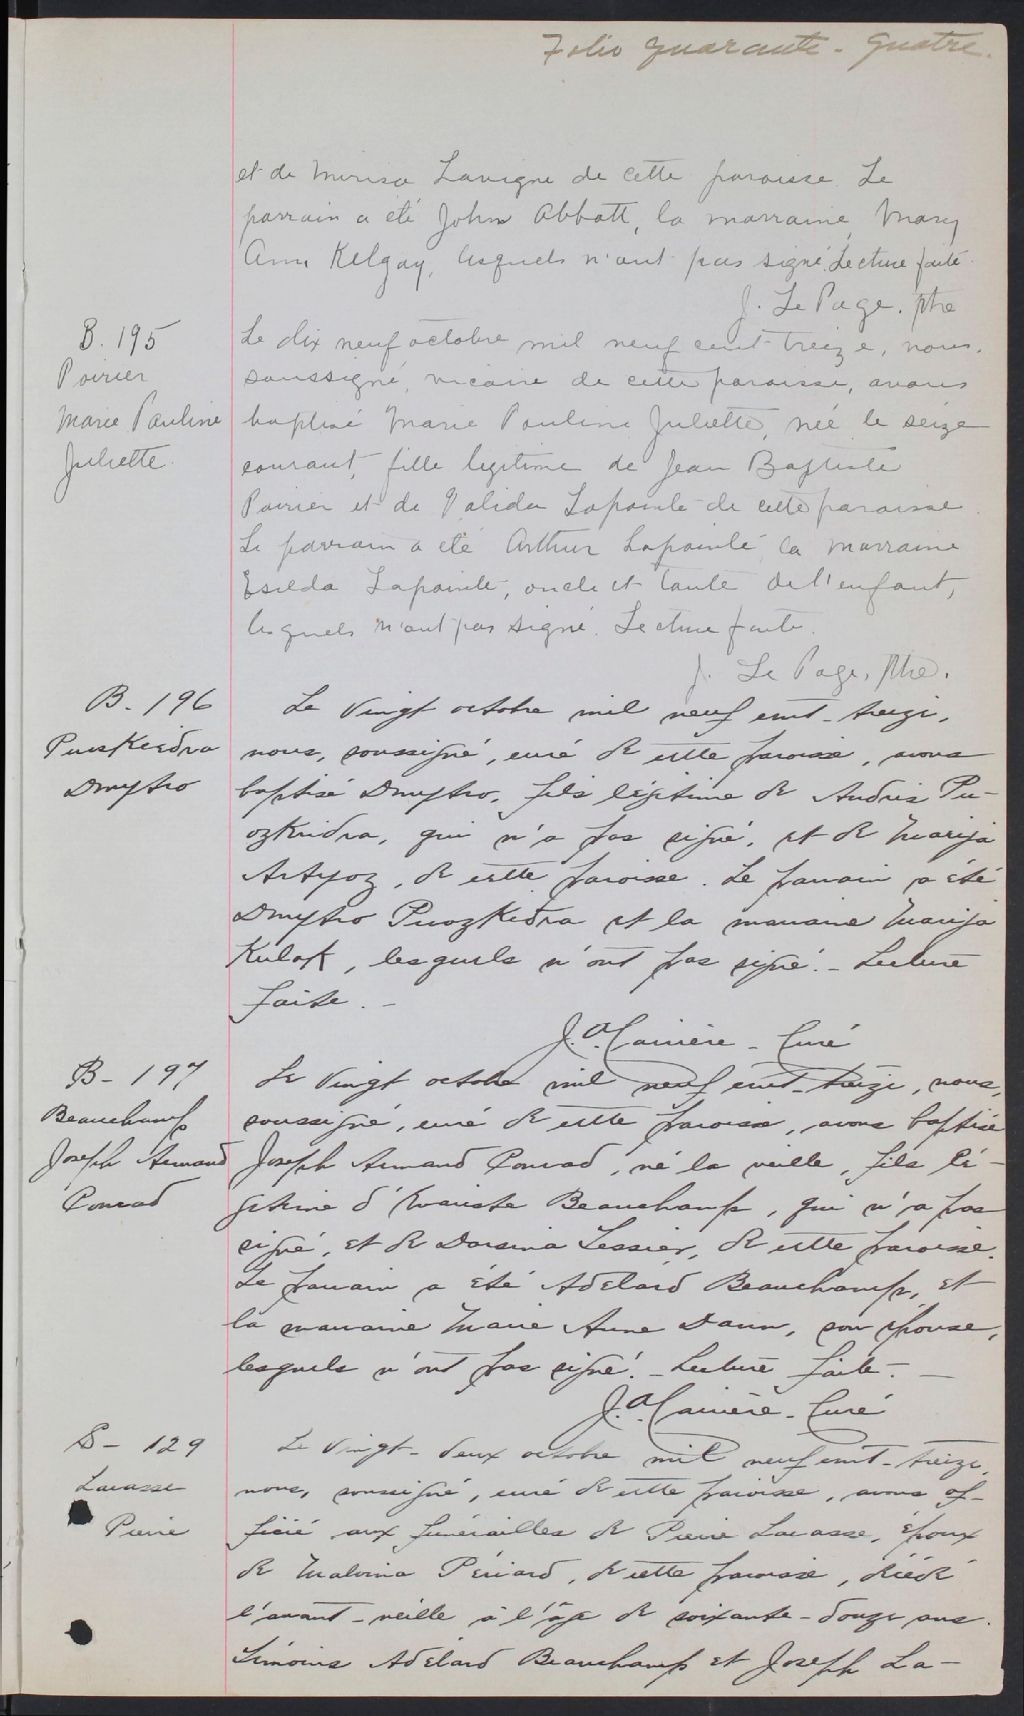 Folio quarante-quatre.
et de Merisa Lavigne de cette paroisse. Le
parrain a été John Abbott, la marraine, Mary
Ann Kelgay, lesquels n'ont pas signé. Lecture faite.
J. Le Page. ptre
B. 195
Poirier
Marie Pauline
Juliette
Le dix neuf octobre mil neuf cent treize, nous,
soussigné, vicaire de cette paroisse, avons
baptisé Marie Pauline Juliette, née le seize
courant, fille legitime de Jean Baptiste
Poirier et de Valida Lapointe de cette paroisse.
Le parrain a été Arthur Lapointe, la marraine
Exilda Lapointe, oncle et tante de l'enfant,
lesquels n'ont pas signé. Lecture faite.
J. Le Page, ptre.
B. 196
Puoskiedra
Dmytro
Le vingt octobre mil neuf cent-treize,
nous, soussigné, curé de cette paroisse, avons
baptisé Dmytro, fils légitime de Andris Pu-
ozkiedra, qui n'a pas signé, et de Marija
Artyoz, de cette paroisse. Le parrain a été
Dmytro Puozkiedra et la marraine Marija
Kulak, lesquels n'ont pas signé. - Lecture
faite. -
J. A. Carrière - Curé
B - 197
Beauchamp
Joseph Armand
Conrad
Le vingt octobre mil neuf cent-treize, nous,
soussigné, curé de cette paroisse, avons baptisé
Joseph Armand Conrad, né la veille, fils lé-
gitime d'Evariste Beauchamp, qui n'a pas
signé, et de Dorsina Lessier, de cette paroisse.
Le parrain a été Adélard Beauchamp, et
la marraine Marie Anne Daun, son épouse,
lesquels n'ont pas signé. - Lecture faite. -
J. A. Carrière - Curé
S - 129
Lavasse
Pierre
Le vingt-deux octobre mil neuf cent-treize,
nous, soussigné, curé de cette paroisse, avons of-
ficié aux funérailles de Pierre Lavasse, époux
de Malvina Périard, de cette paroisse, décédé
l'avant-veille à l'âge de soixante-douze ans.
Témoins Adélard Beauchamp et Joseph La-